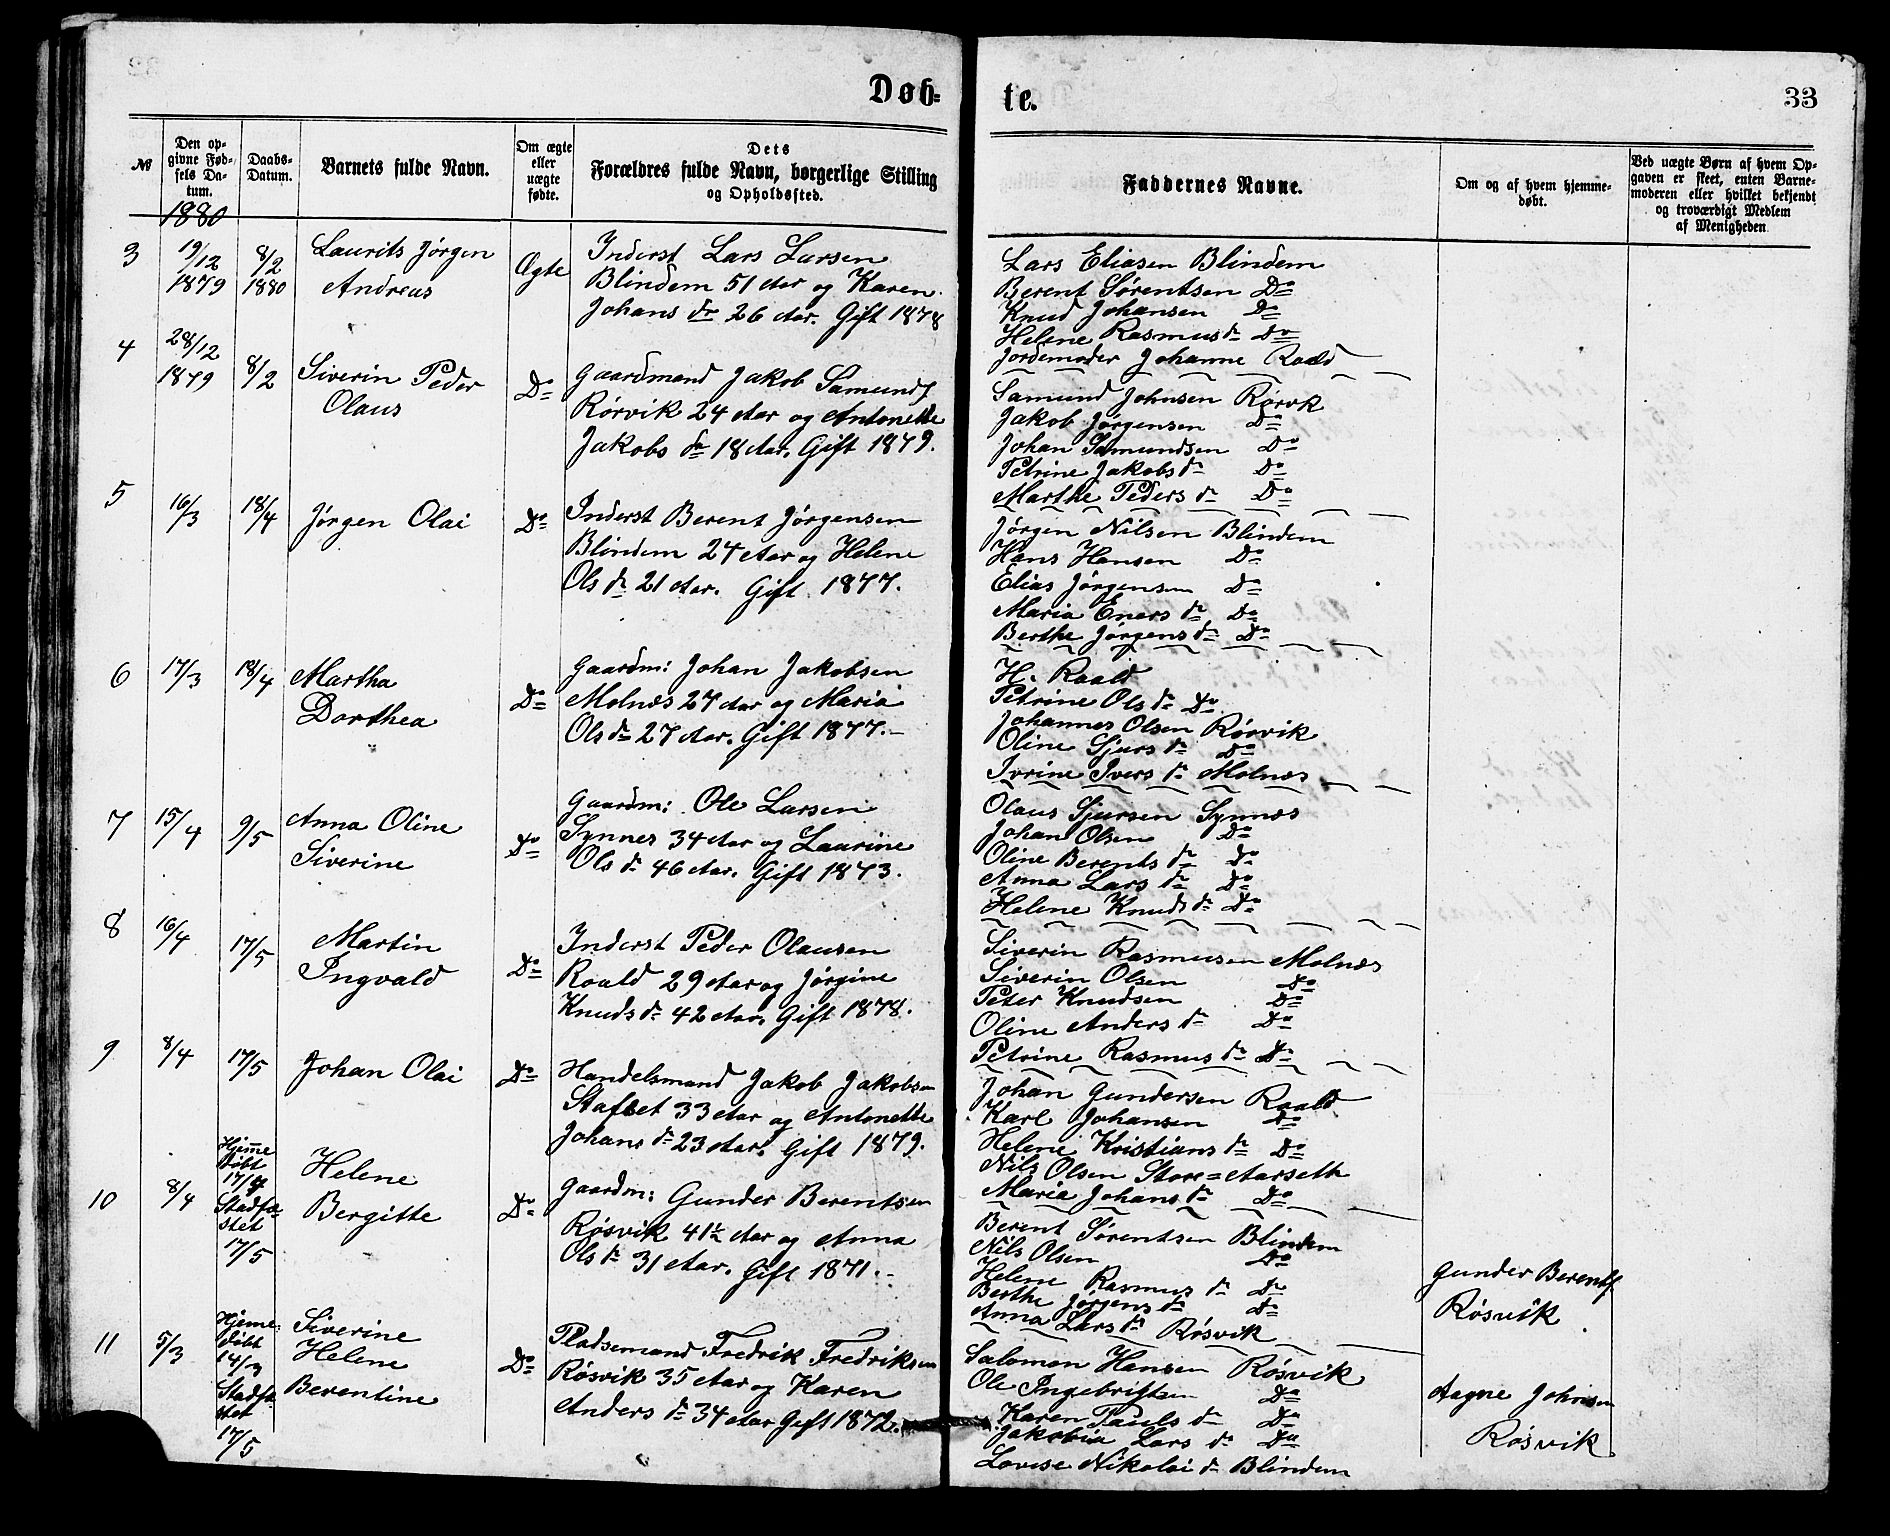 Døb-
te.
33
№
Den op-
givne Fød-
sels Da-
tum.
Daabs-
Datum.
Barnets fulde Navn.
Om ægte
eller
uægte
fødte.
Dets
Forældres fulde Navn, borgerlige Stilling
og Opholdssted.
Faddernes Navne.
Om og af hvem hjemme-
døbt.
Ved uægte Børn af hvem Op-
gaven er skeet, enten Barne-
moderen eller hvilket bekjendt
og troværdigt Medlem
af Menigheden
1880
3
19/12
1879
8/2
1880
Laurits Jørgen
Andreas
Ægte
Inderst Lars Larsen
Blindem 51 Aar og Karen
Johans dr 26 Aar. Gift 1878
Lars Eliasen Blindem
Berent Sørentsen Do
Knud Johansen Do
Helene Rasmus dr Do
Jordemoder Johanne Roald
4
28/12
1879
8/2
Siverin Peder
Olaus
Do
Gaardmand Jakob Samunds
Rørvik 24 Aar og Antonette
Jakobs dr 18 Aar. Gift 1879.
Samund Johnsen Rørvk
Jakob Jørgensen Do
Johan Samundsen Do
Petrine Jakobs dr Do
Marthe Peders dr Do
5
16/3
18/4
Jørgen Olai
Do
Inderst Berent Jørgensen
Blindem 24 Aar og Helene
Ols dr 21 Aar. Gift 1877.
Jørgen Nilsen Blindem
Hans Hansen Do
Elias Jørgensen Do
Maria Eners dr Do
Berthe Jørgens dr Do
6
17/3
18/4
Martha
Dorthea
Do
Gaardm: Johan Jakobsen
Molnæs 27 Aar og Maria
Ols dr 27 Aar. Gift 1877.
H. Roald
Petrine Ols dr Do
Johannes Olsen Rørvik
Oline Sjurs dr Do
Ivrine Ivers dr Molnæs
7
15/4
9/5
Anna Oline
Siverine
Do
Gaardm: Ole Larsen
Synnes 34 Aar og Laurine
Ols dr 46 Aar. Gift 1873.
Olaus Sjursen Synnæs
Johan Olsen Do
Oline Berents dr Do
Anna Lars dr Do
Helene Knuds dr Do
8
16/4
17/5
Martin
Ingvald
Do
Inderst Peder Olausen
Roald 29 Aar og Jørgine
Knuds dr 42 Aar. Gift 1878.
Siverin Rasmusen Molnæs
Siverin Olsen Do
Peter Knudsen Do
Oline Anders dr Do
Petrine Rasmus dr Do
9
8/4
17/5
Johan Olai
Do
Handelsmand Jakob Jakobsen
Stafset 33 Aar og Antonette
Johans dr 23 Aar. Gift 1879.
Johan Gundersen Roald
Karl Johansen Do
Helene Kristians dr Do
Nils Olsen Store=Aarseth
Maria Johans dr Do
10
8/4
Hjemme
døbt
17/4
Stadfæ-
stet
17/5
Helene
Bergitte
Do
Gaardm: Gunder Berentsen
Røsvik 41½ Aar og Anna
Ols dr 31 Aar. Gift 1871.
Berent Sørentsen Blindem
Nils Olsen Do
Helene Rasmus dr Do
Berthe Jørgens dr Do
Anna Lars dr Røsvik
Gunder Berents
Røsvik
11
5/3
Hjemme-
døbt
14/3
Stadfæ-
stet
17/5
Siverine
Helene
Berentine
Do
Pladsemand Fredrik Fredriksen
Røsvik 35 Aar og Karen
Anders dr 34 Aar Gift 1872.
Salomon Hansen Røsvik
Ole Ingebrigtsen Do
Karen Pauls dr Do
Jakobia Lars dr Do
Lovise Nikolai dr Blindem
Aagne Johnsen
Røsvik